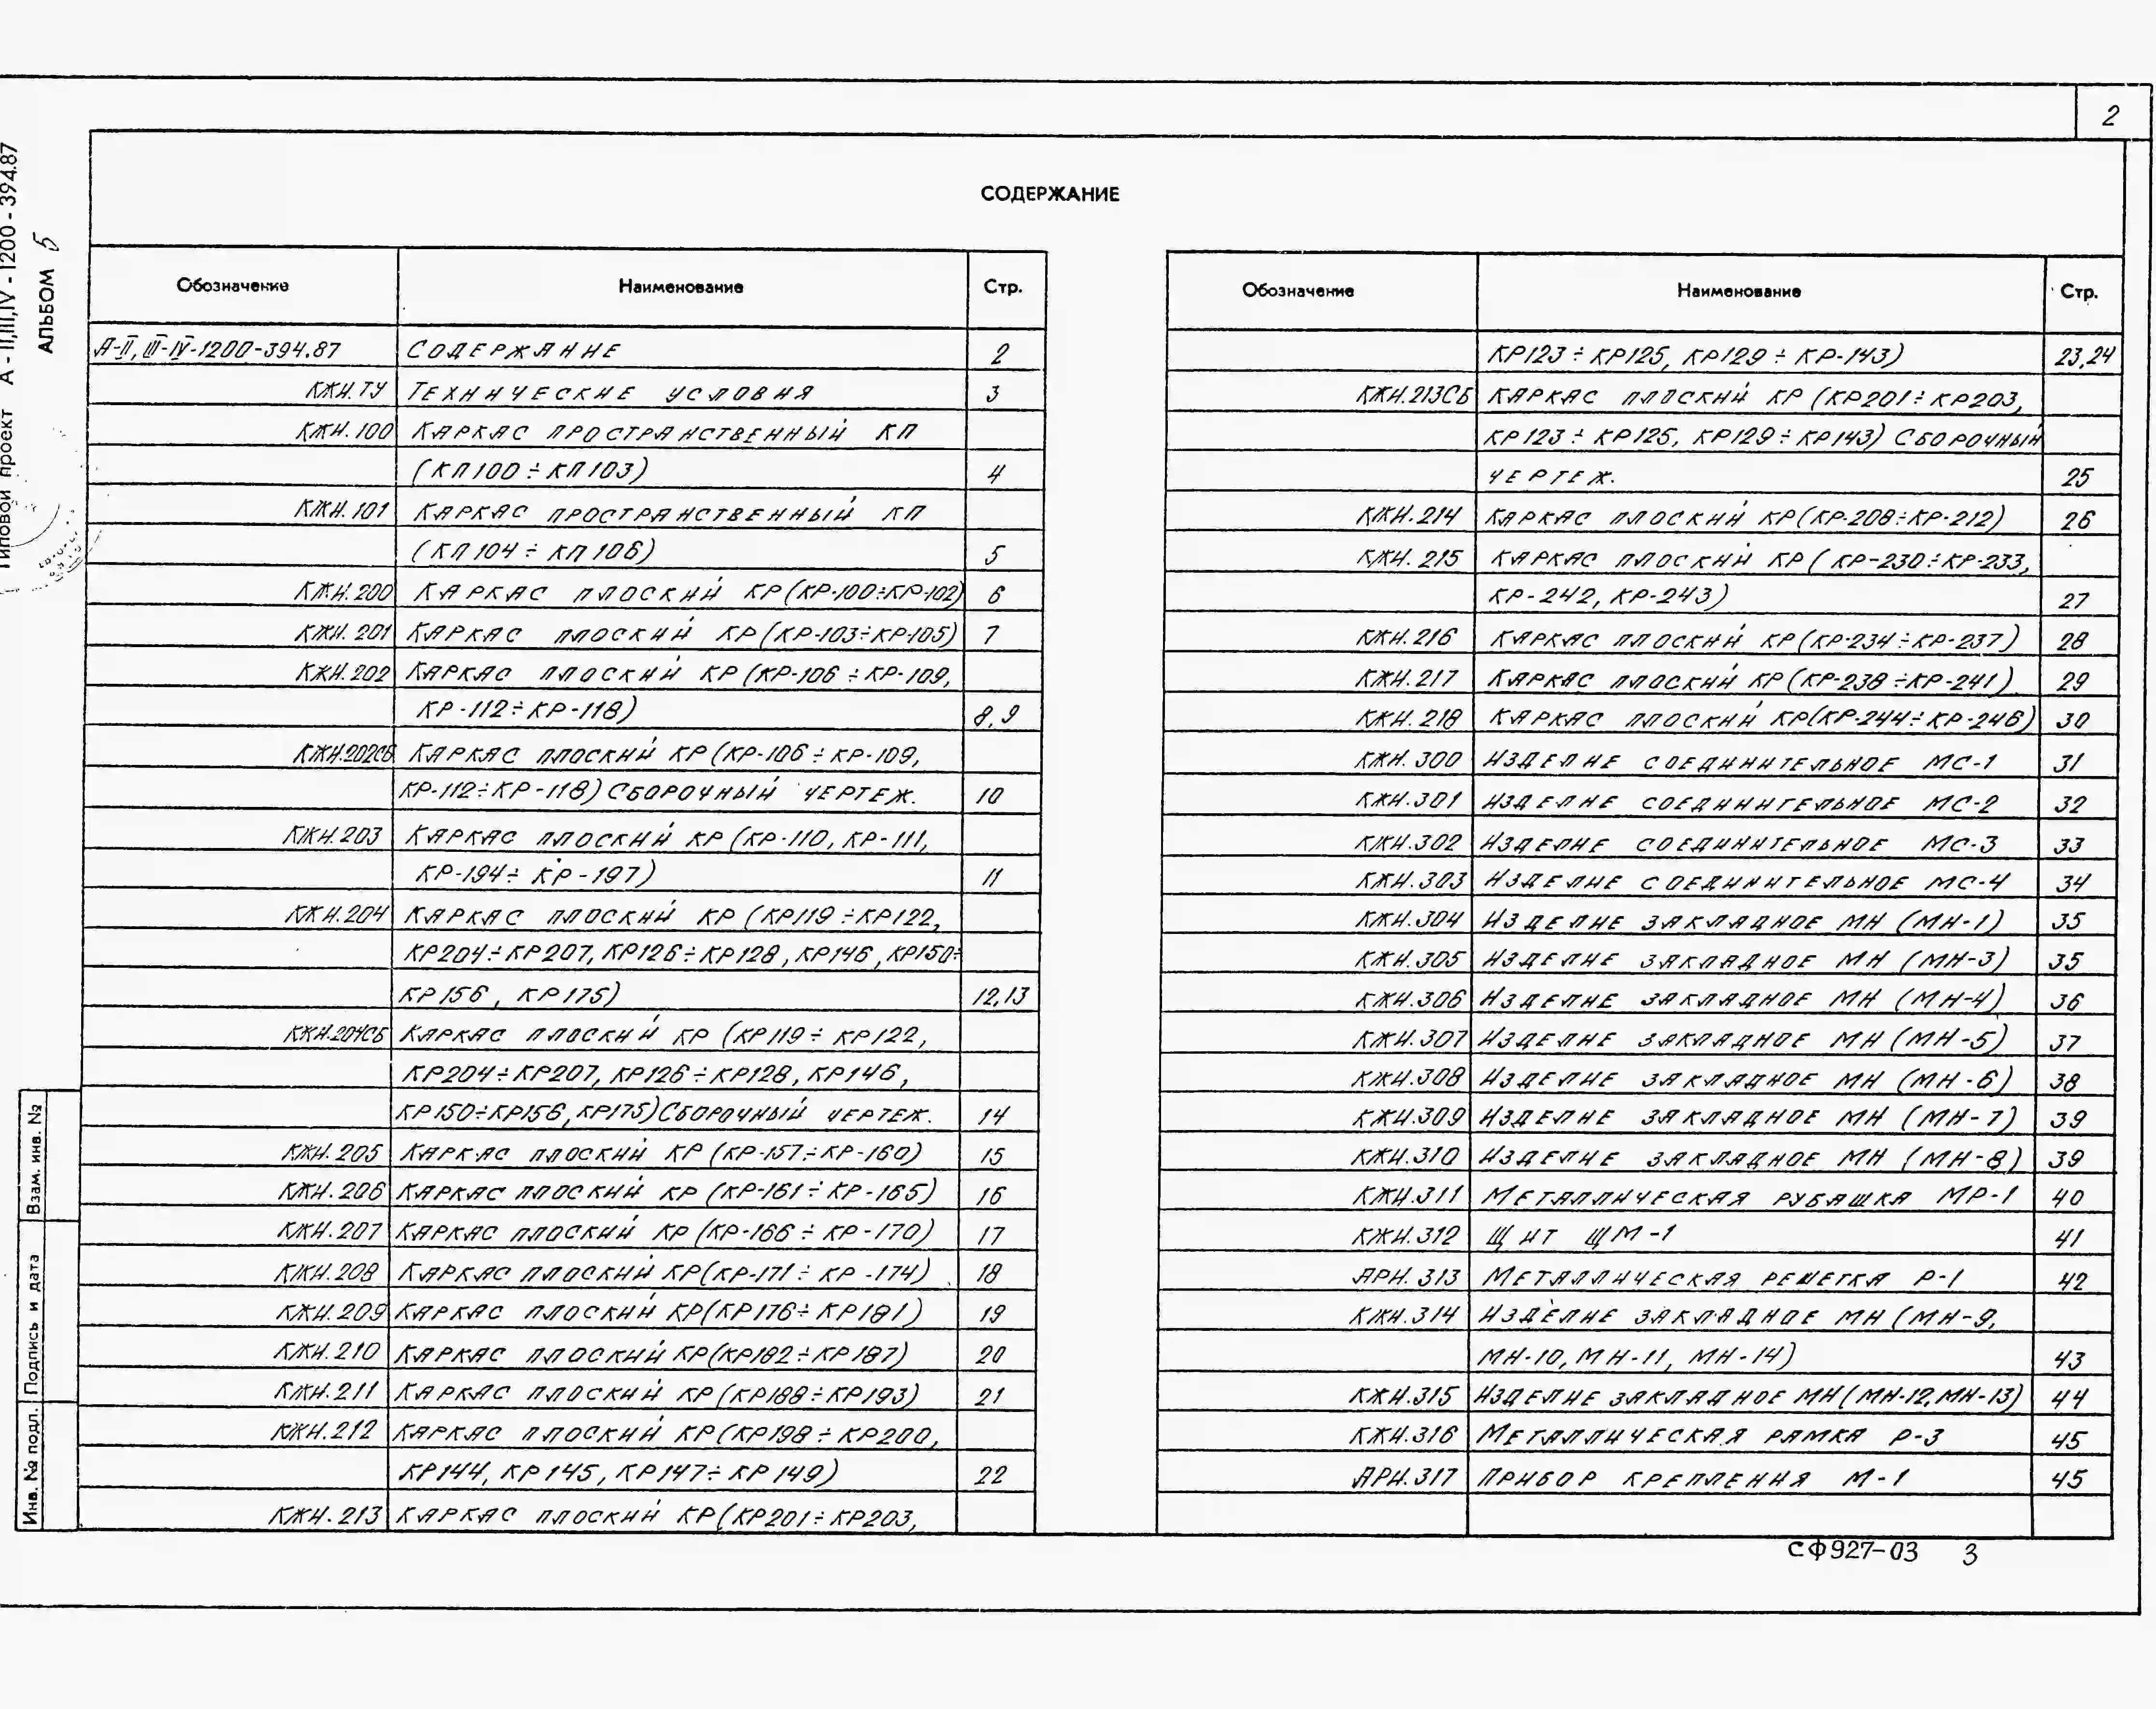 2
Типовой проект А-II,III,IV-1200-394.87
АЛЬБОМ 5
СОДЕРЖАНИЕ
Обозначение Наименование Стр.
А-II,III-IV-1200-394.87 СОДЕРЖАНИЕ 2
КЖИ.ТУ ТЕХНИЧЕСКИЕ УСЛОВИЯ 3
КЖИ.100 КАРКАС ПРОСТРАНСТВЕННЫЙ КП
(КП100÷КП103) 4
КЖИ.101 КАРКАС ПРОСТРАНСТВЕННЫЙ КП
(КП104÷КП106) 5
КЖИ.200 КАРКАС ПЛОСКИЙ КР(КР-100÷КР-102) 6
КЖИ.201 КАРКАС ПЛОСКИЙ КР(КР-103÷КР-105) 7
КЖИ.202 КАРКАС ПЛОСКИЙ КР(КР-106÷КР-109,
КР-112÷КР-118) 8,9
КЖИ.202СБ КАРКАС ПЛОСКИЙ КР(КР-106÷КР-109,
КР-112÷КР-118) СБОРОЧНЫЙ ЧЕРТЕЖ. 10
КЖИ.203 КАРКАС ПЛОСКИЙ КР(КР-110, КР-111,
КР-194÷КР-197) 11
КЖИ.204 КАРКАС ПЛОСКИЙ КР(КР119÷КР122,
КР204÷КР207, КР126÷КР128, КР146, КР150÷
КР156, КР175) 12,13
КЖИ.204СБ КАРКАС ПЛОСКИЙ КР(КР119÷КР122,
КР204÷КР207, КР126÷КР128, КР146,
КР150÷КР156, КР175) СБОРОЧНЫЙ ЧЕРТЕЖ. 14
КЖИ.205 КАРКАС ПЛОСКИЙ КР(КР-157÷КР-160) 15
КЖИ.206 КАРКАС ПЛОСКИЙ КР(КР-161÷КР-165) 16
КЖИ.207 КАРКАС ПЛОСКИЙ КР(КР-166÷КР-170) 17
КЖИ.208 КАРКАС ПЛОСКИЙ КР(КР-171÷КР-174) 18
КЖИ.209 КАРКАС ПЛОСКИЙ КР(КР176÷КР181) 19
КЖИ.210 КАРКАС ПЛОСКИЙ КР(КР182÷КР187) 20
КЖИ.211 КАРКАС ПЛОСКИЙ КР(КР188÷КР193) 21
КЖИ.212 КАРКАС ПЛОСКИЙ КР(КР198÷КР200,
КР144, КР145, КР147÷КР149) 22
КЖИ.213 КАРКАС ПЛОСКИЙ КР(КР201÷КР203,
Обозначение Наименование Стр.
КР123÷КР125, КР129÷КР-143) 23,24
КЖИ.213СБ КАРКАС ПЛОСКИЙ КР(КР201÷КР203,
КР123÷КР125, КР129÷КР143) СБОРОЧНЫЙ
ЧЕРТЕЖ. 25
КЖИ.214 КАРКАС ПЛОСКИЙ КР(КР-208÷КР-212) 26
КЖИ.215 КАРКАС ПЛОСКИЙ КР(КР-230÷КР-233,
КР-242, КР-243) 27
КЖИ.216 КАРКАС ПЛОСКИЙ КР(КР-234÷КР-237) 28
КЖИ.217 КАРКАС ПЛОСКИЙ КР(КР-238÷КР-241) 29
КЖИ.218 КАРКАС ПЛОСКИЙ КР(КР-244÷КР-246) 30
КЖИ.300 ИЗДЕЛИЕ СОЕДИНИТЕЛЬНОЕ МС-1 31
КЖИ.301 ИЗДЕЛИЕ СОЕДИНИТЕЛЬНОЕ МС-2 32
КЖИ.302 ИЗДЕЛИЕ СОЕДИНИТЕЛЬНОЕ МС-3 33
КЖИ.303 ИЗДЕЛИЕ СОЕДИНИТЕЛЬНОЕ МС-4 34
КЖИ.304 ИЗДЕЛИЕ ЗАКЛАДНОЕ МН (МН-1) 35
КЖИ.305 ИЗДЕЛИЕ ЗАКЛАДНОЕ МН (МН-3) 35
КЖИ.306 ИЗДЕЛИЕ ЗАКЛАДНОЕ МН (МН-4) 36
КЖИ.307 ИЗДЕЛИЕ ЗАКЛАДНОЕ МН (МН-5) 37
КЖИ.308 ИЗДЕЛИЕ ЗАКЛАДНОЕ МН (МН-6) 38
КЖИ.309 ИЗДЕЛИЕ ЗАКЛАДНОЕ МН (МН-7) 39
КЖИ.310 ИЗДЕЛИЕ ЗАКЛАДНОЕ МН (МН-8) 39
КЖИ.311 МЕТАЛЛИЧЕСКАЯ РУБАШКА МР-1 40
КЖИ.312 ЩИТ ЩМ-1 41
АРИ.313 МЕТАЛЛИЧЕСКАЯ РЕШЕТКА Р-1 42
КЖИ.314 ИЗДЕЛИЕ ЗАКЛАДНОЕ МН (МН-9,
МН-10, МН-11, МН-14) 43
КЖИ.315 ИЗДЕЛИЕ ЗАКЛАДНОЕ МН(МН-12, МН-13) 44
КЖИ.316 МЕТАЛЛИЧЕСКАЯ РАМКА Р-3 45
АРИ.317 ПРИБОР КРЕПЛЕНИЯ М-1 45
Взам. инв. №
Подпись и дата
Инв. № подл.
СФ927-03 3